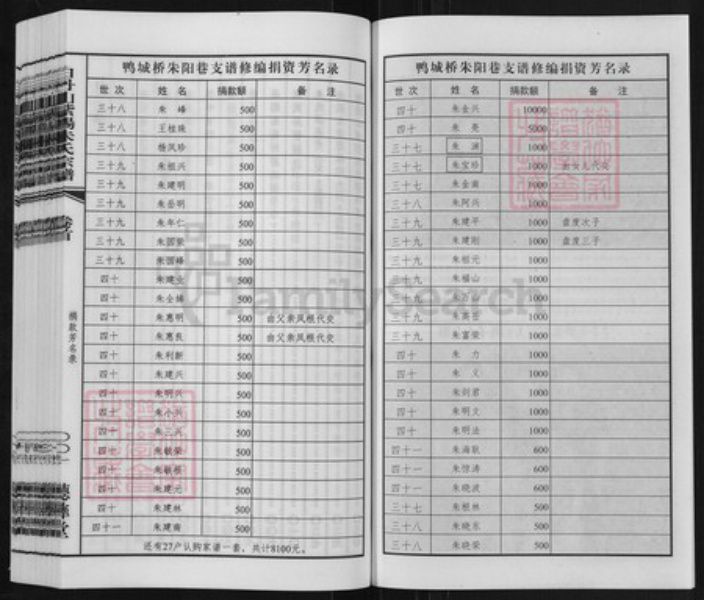 鸭城桥朱阳巷支谱修编捐资芳名录
世次 姓名 捐款额 备注
三十八 朱峰 500
三十八 王桂珠 500
三十八 杨凤珍 500
三十九 朱祖兴 500
三十九 朱建明 500
三十九 朱岳明 500
三十九 朱年仁 500
三十九 朱国荣 500
三十九 朱国锋 500
四十 朱建业 500
四十 朱全娣 500
四十 朱惠明 500 由父亲凤根代交
四十 朱惠良 500 由父亲凤根代交
四十 朱利新 500
四十 朱建兴 500
四十 朱明兴 500
四十 朱小兴 500
四十 朱三兴 500
四十 朱敏荣 500
四十 朱敏根 500
四十 朱建元 500
四十 朱建林 500
四十一 朱建南 500
还有27户认购家谱一套，共计8100元。
捐款芳名录
鸭城桥朱阳巷支谱修编捐资芳名录
世次 姓名 捐款额 备注
四十 朱金兴 10000
四十 朱亮 5000
三十七 朱 1000
三十七 朱宝珍 1000 由女儿代交
三十七 朱金南 1000
三十八 朱阿兴 1000
三十九 朱建平 1000 盘度次子
三十九 朱建刚 1000 盘度三子
三十九 朱祖元 1000
三十九 朱福山 1000
三十九 朱万山 1000
三十九 朱高祖 1000
三十九 朱富荣 1000
四十 朱力 1000
四十 朱义 1000
四十 朱剑君 1000
四十 朱明文 1000
四十 朱明法 1000
四十一 朱海耿 600
四十一 朱惊涛 600
四十一 朱晓波 600
三十七 朱根林 500
三十八 朱晓东 500
三十八 朱晓荣 500
FamilySearch